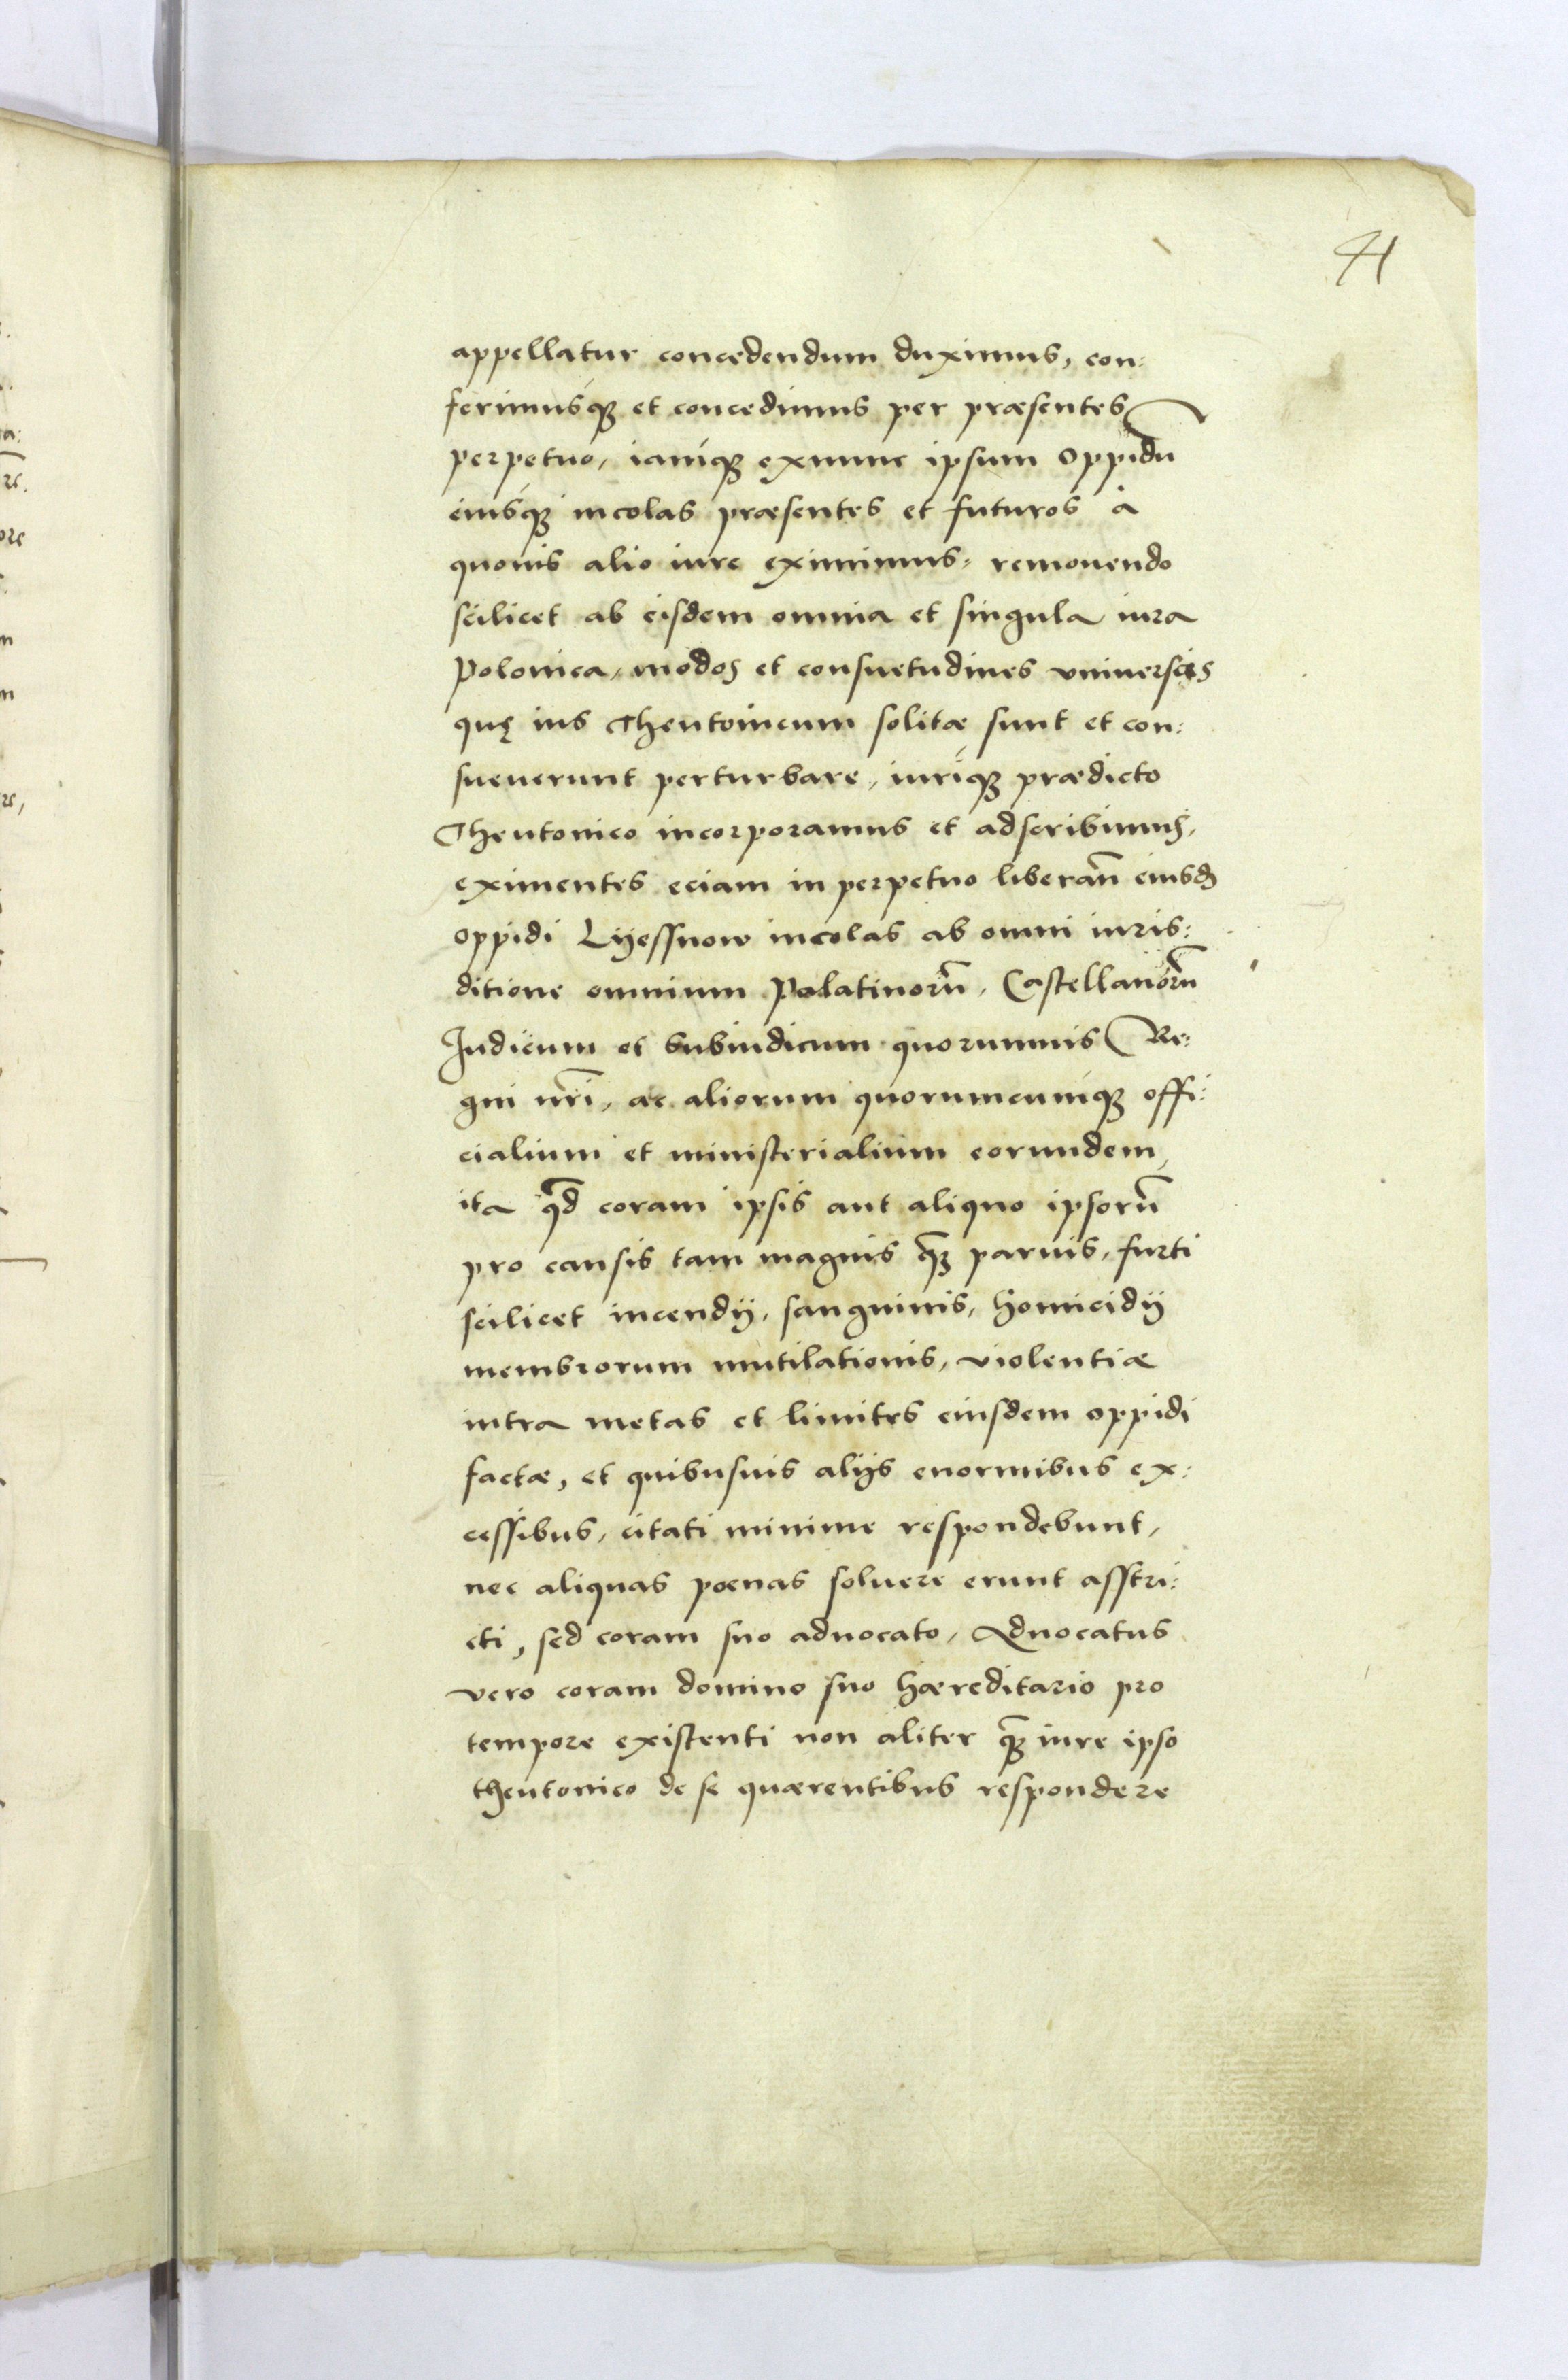 41
appellatur concedendum duximus, con:
ferimusq̃ et concedimus per præsentes
perpetuo, iamq̃ exnunc ipsum oppidũ
eiusq̃ incolas præsentes et futuros à
quouis alio iure eximimus, remouendo
scilicet ab eisdem omnia et singula iura
Polonica, modos et consuetudines vniversas
quę ius Theutonicum solitæ sunt et con:
sueuerunt perturbare, iuriq̃ prædicto
Theutonico incorporamus et adscribimus,
eximentes eciam in perpetuo liberañ eiusd
oppidi Lyessnow incolas ab omni iuris:
ditione omnium Palatinorũ, Castellanorũ
Iudicum et Subiudicum quorumuis Re:
gni nr̃i, ac aliorum quorumcumq̃ offi:
cialium et ministerialium eorundem,
ita q̃d coram ipsis aut aliquo ipsorũ
pro causis tam magnis q̃ paruis, furti
scilicet incendij, sanguinis, homicidij
membrorum mutilationis, violentiæ
intra metas et limites eiusdem oppidi
factæ, et quibusuis alijs enormibus ex:
cessibus, citati minime respondebunt,
nec aliquas poenas soluere erunt asstri:
cti, sed coram suo aduocato, Aduocatus
vero coram domino suo hæreditario pro
tempore existenti non aliter q̃ iure ipso
theutonico de se quærentibus respondere